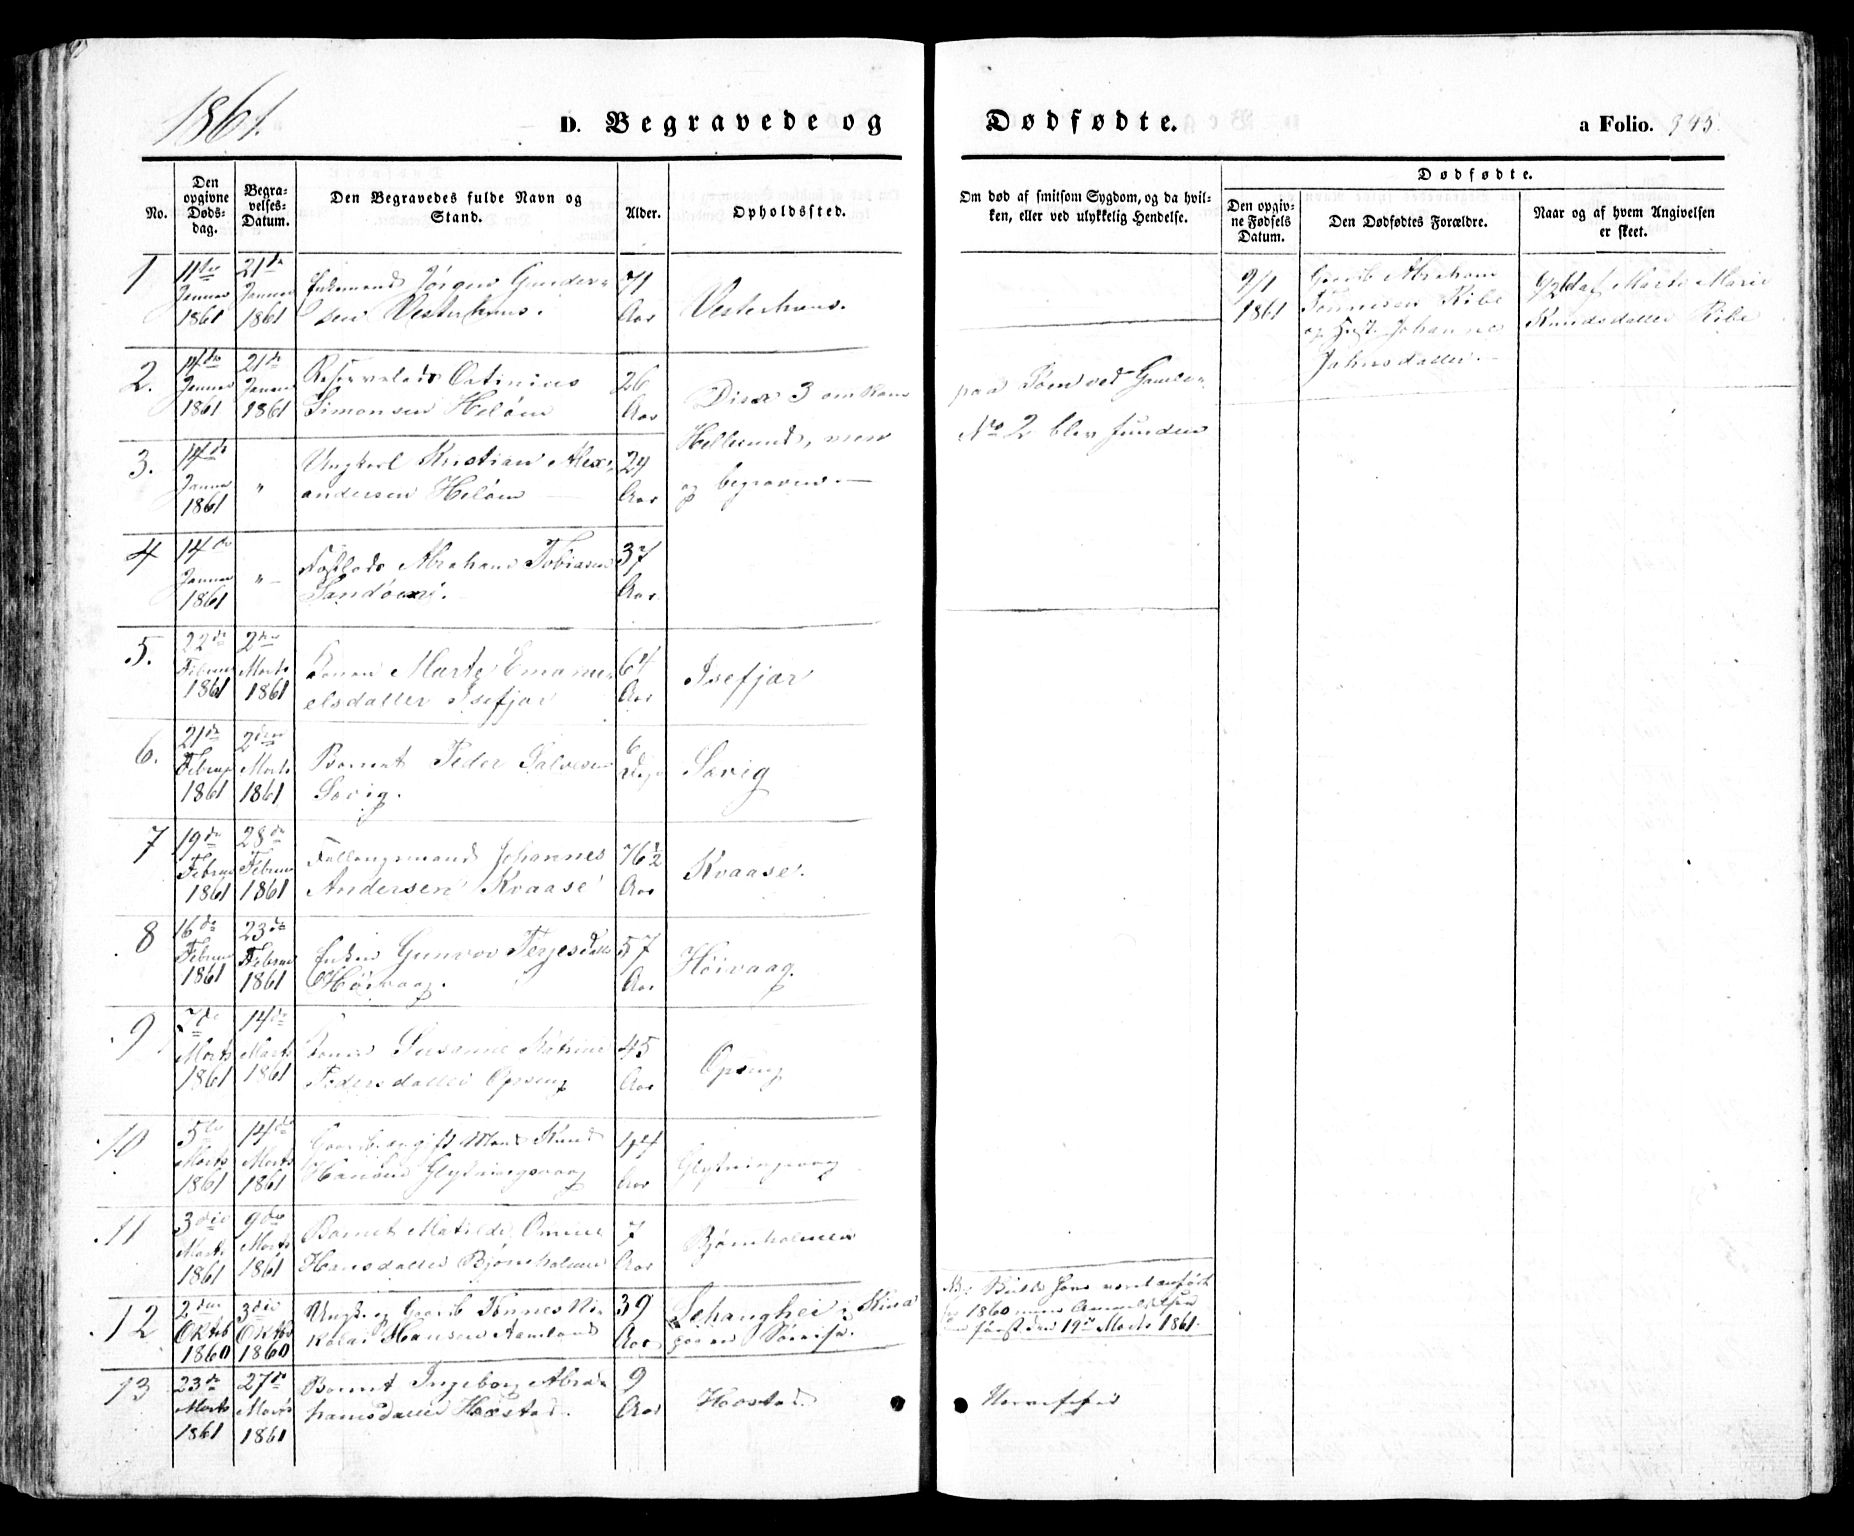 1861.
D. Begravede og Dødfødte. a Folio. 345.
No.
Den opgivne Døds-dag.
Begra-velses-Datum.
Den Begravedes fulde Navn og Stand.
Alder.
Opholdssted.
Om død af smitsom Sygdom, og da hvil-
ken, eller ved ulykkelig Hendelse.
Dødfødte.
Den opgiv-
ne Fødsels
Datum.
Den Dødfødtes Forældre.
Naar og af hvem Angivelsen
er skeet.
1 11te Januar 1861 21de Januar 1861 Jørgen Gunder-
sen Vesterhuus. 71 Aar Vesterhuus.
9/1 1861 Abraham
Tønnesen Ribe
og Johanne
Jahnsdatter.
af Marte Marie
Knudsdatter Ribe
2. 14de Januar 1861 21de Januar 1861
Simonsen Heløen 26 Aar
Disse 3 omkom
paa Søen ved Gamle-
Hellesund, men No 2 blev funden
og begraven.
3. 14de Januar 1861 " Ungkarl Kristian Alex-
andersen Heløen 24 Aar
4 14de Januar 1861 " Abraham Tobiasen
Sandøen. 37 Aar
5. 22de Februar 1861 2den Marts 1861 Konen Marte Emanu-
elsdatter Isefjær 64 Aar Isefjær
6. 21de Februar 1861 2den Marts 1861 Barnet Peder Salvesen
Sævig. 6 Dage Sævig
7 19de Februar 1861 28de Februar 1861 Johannes
Andersen Kvaase 76 1/2 Aar Kvaase.
8 16de Februar 1861 23de Februar 1861 Enken Gunvor Terjesdatter
Høivaag. 57 Aar Høivaag.
9 7de Marts 1861 14de Marts 1861 Konen Susanne Katrine
Pedersdatter Opseng 45 Aar Opseng
10 5te Marts 1861 14de Marts 1861 Gaardbr. gift Mand Knud
Hansen 44 Aar
11 3die Marts 1861 9de Marts 1861 Barnet Matilde Omine
Hansdatter Bjørnholmen 7 Aar Bjørnholmen
12 2den Oktob 1860 3die Oktbr 1860 Ungk. Tønnes Ni-
kolai Hansen Aamland 39 Aar Schanghei i Kina
paa en Søreise.
1860 men Anmeldelsen
først den 19de Marts 1861.
13 23de Marts 1861 27de Marts 1861 Barnet Ingeborg Abra-
hamsdatter Haastad. 9 Aar Haastad
Nervefeber